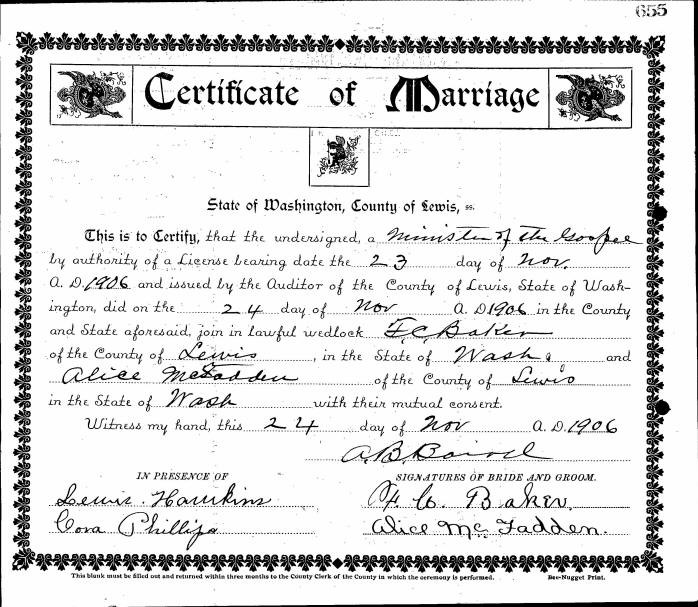 655
Certificate of Marriage
State of Washington, County of Lewis, ss.
This is to Certify, that the undersigned, a Minister of the Gospel
by authority of a License bearing date the 23 day of Nov.
A. D. 1906 and issued by the Auditor of the County of Lewis, State of Wash-
ington, did on the 24 day of Nov A. D. 1906 in the County
and State aforesaid, join in lawful wedlock F. C. Baker
of the County of Lewis, in the State of Wash, and
Alice McFadden of the County of Lewis
in the State of Wash with their mutual consent.
Witness my hand, this 24 day of Nov A. D. 1906
A. B.
IN PRESENCE OF SIGNATURES OF BRIDE AND GROOM.
Lewis Hawkins F. C. Baker.
Cora Phillips Alice McFadden.
This blank must be filled out and returned within three months to the County Clerk of the County in which the ceremony is performed. Bee-Nugget Print.